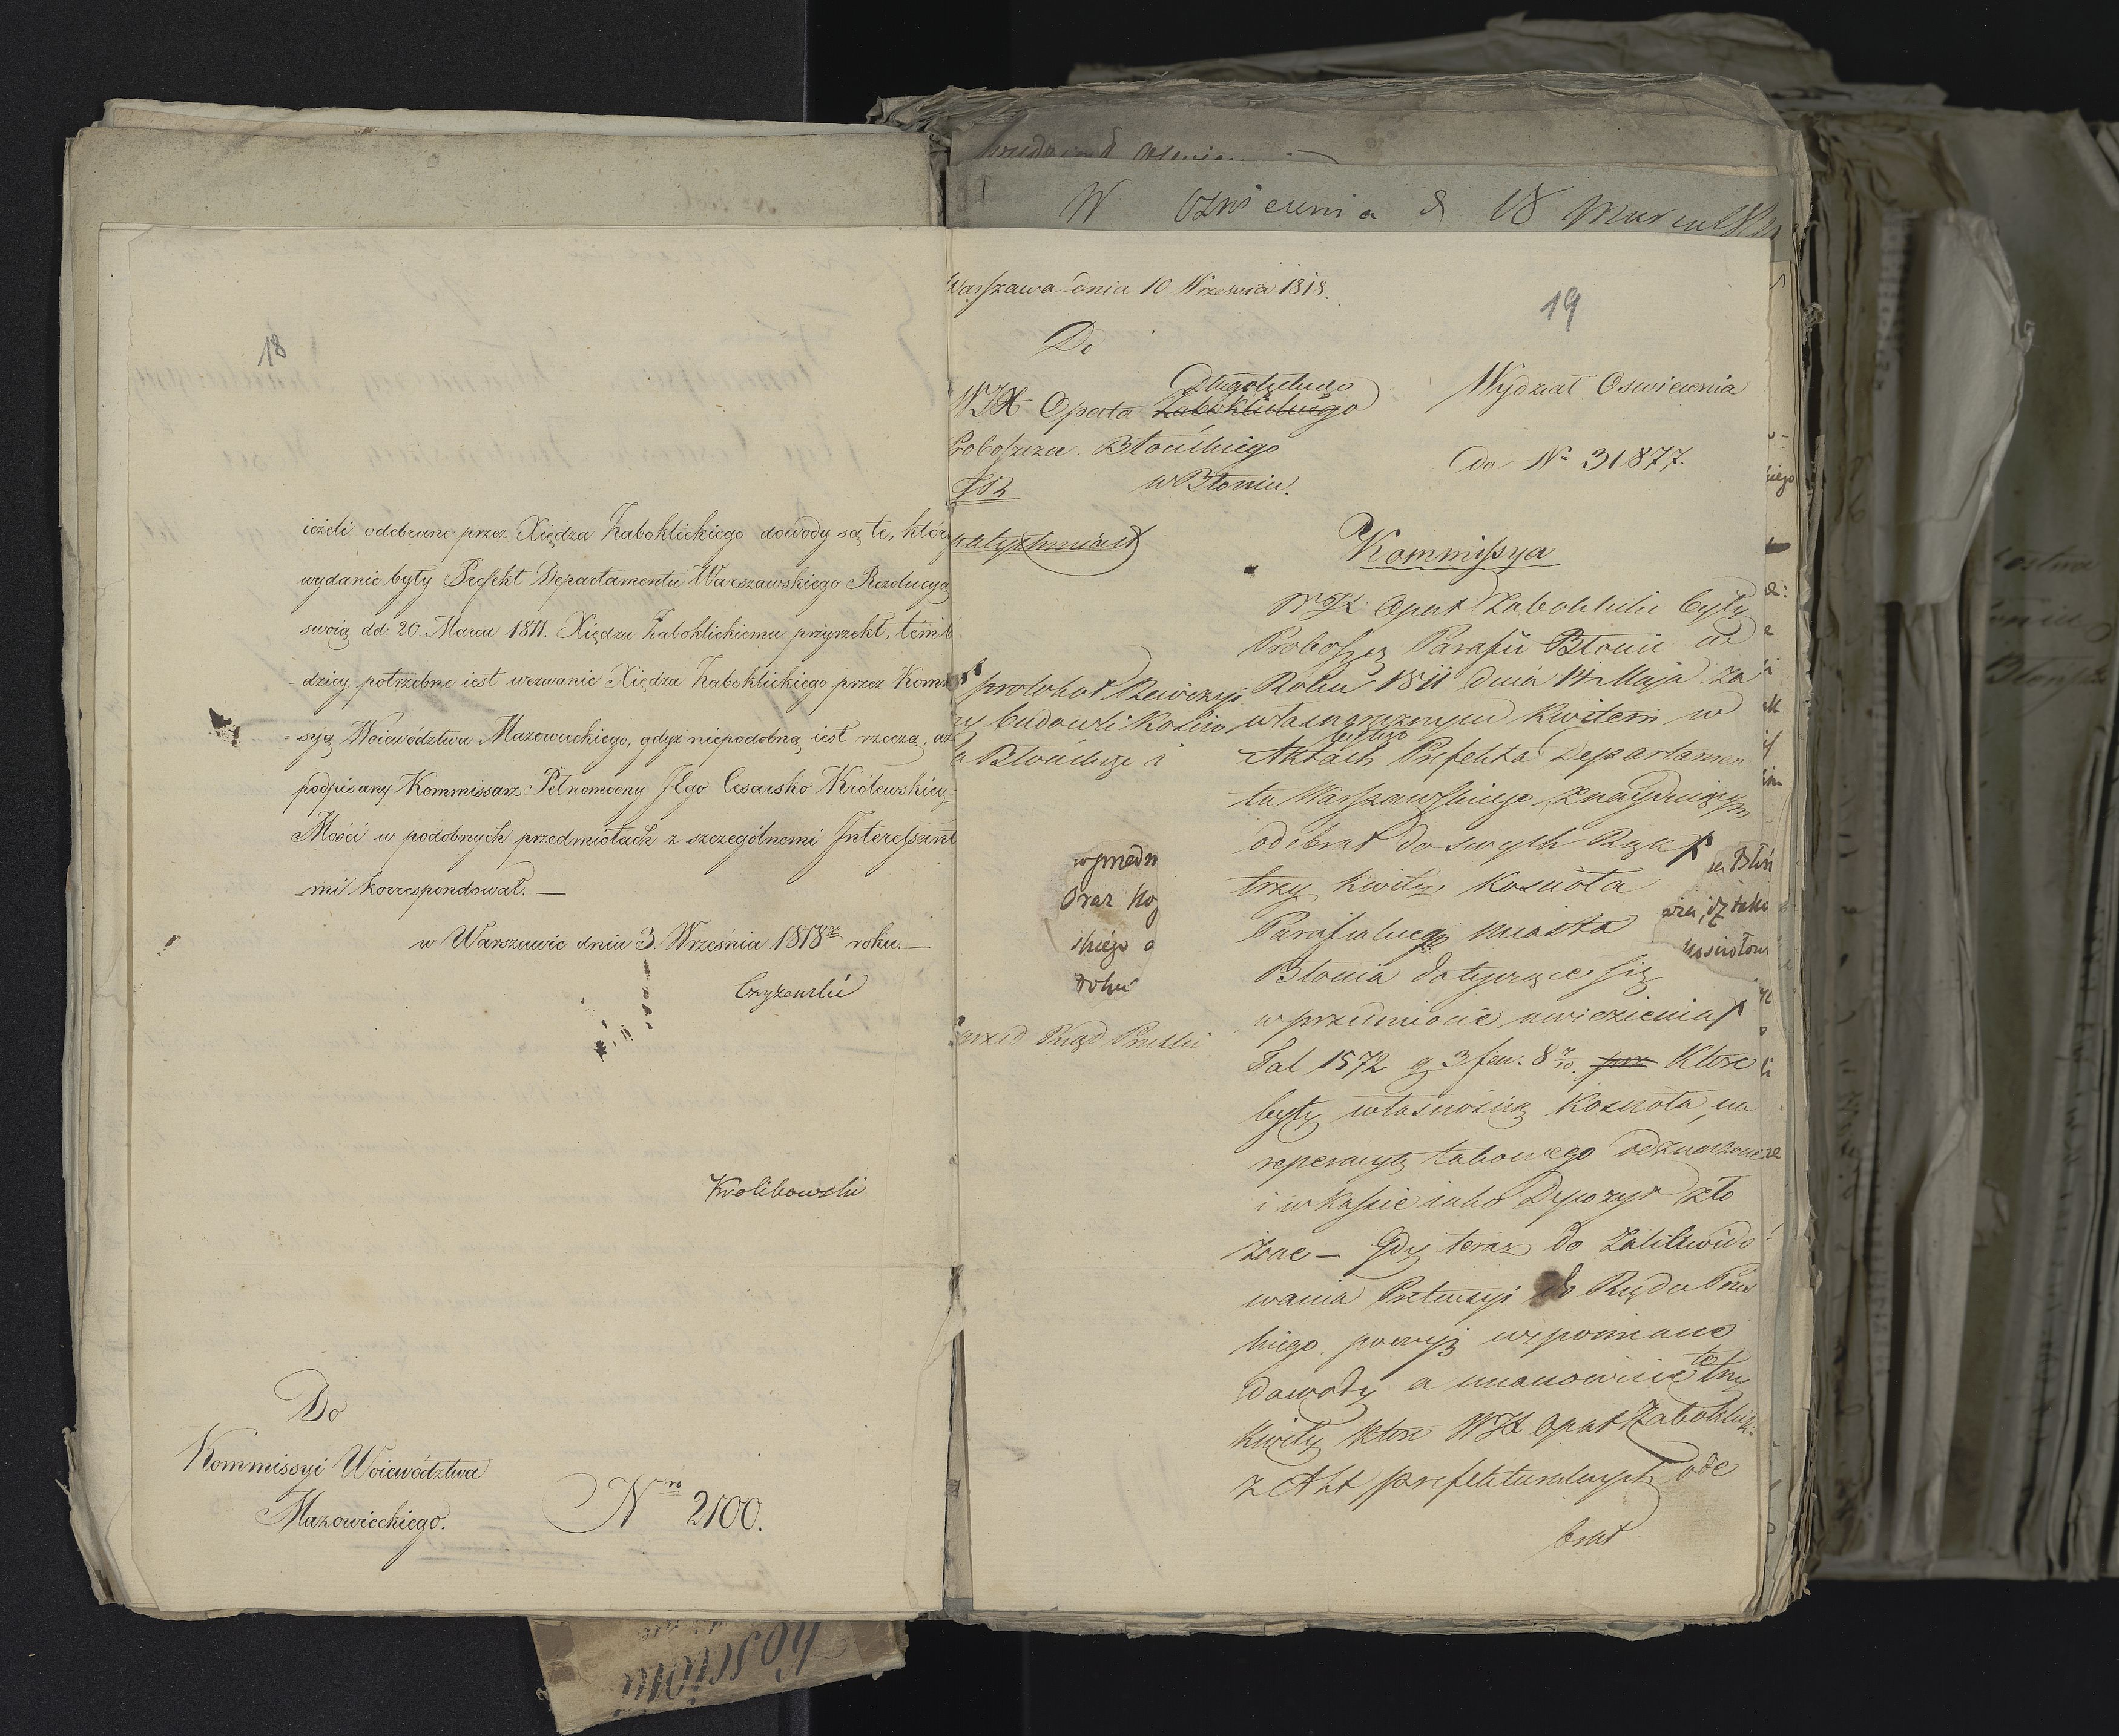 18
ieżeli odebrane przez Xiędza Zaboklickiego dowody są te, któr
wydanie były Prefekt Departamentu Warszawskiego Rezolucyą
swoią dd: 20. Marca 1811. Xiędzu Zaboklickiemu przyrzekł, tem b
dziey potrzebne iest wezwanie Xiędza Zaboklickiego przez Kommis
syą Woiewództwa Mazowieckiego, gdyż niepodobną iest rzeczą, aż
podpisany Kommissarz Pełnomocny JEgo Cesarsko Królewskiey
Mości w podobnych przedmiotach z szczególnemi Interessent
mi korrespondował. —
w Warszawie dnia 3. Września 1818go roku. —
Czyżewski
Krolikowski
Do
Kommissyi Woiewództwa
Mazowieckiego.
Nro 2100.
W Oświecenia d 18
Warszawa dnia 10 Wrzesnia 1818.
19
Do
Długołęckiego
WJX Opata Zaboklickiego
Proboszcza Błońskiego
w Błoniu.
natychmiast
Wydział Oswiecenia
do No 31877.
Kommissya
WJX Opat Zaboklicki były
Proboszcz Parafii Błonie w
Roku 1811 dnia 14 Maja za
własnoręcznym kwitem w
Aktach Prefekta Departamen
tu Warszawskiego znayduiącym
odebrał do swych Rąk
trzy kwity Koscioła
Parafialnego miasta
Błonia dotyczące się
w przedmiocie uwiezienia
Tal 1572 g 3 fen: 8 7/10. prz Które
były własnością Koscioła, na
reperacyą takowego odznaczone
i w Kassie iako Depozyt zło
żone — Gdy teraz do Zalikwido
wania Pretensyi do Rządu Prus
kiego powyż wspomiane
dowody a mianowicie te trzy
kwity które WJX Opat Zaboklicki
z Akt prefekturalnych ode
brał
protokoł Rewizyi
budowli Koscio
ła Błońskiego i
wpredn
oraz
skiego o
roku
przez Rząd Pruski
Błoń
iako
kosciołow